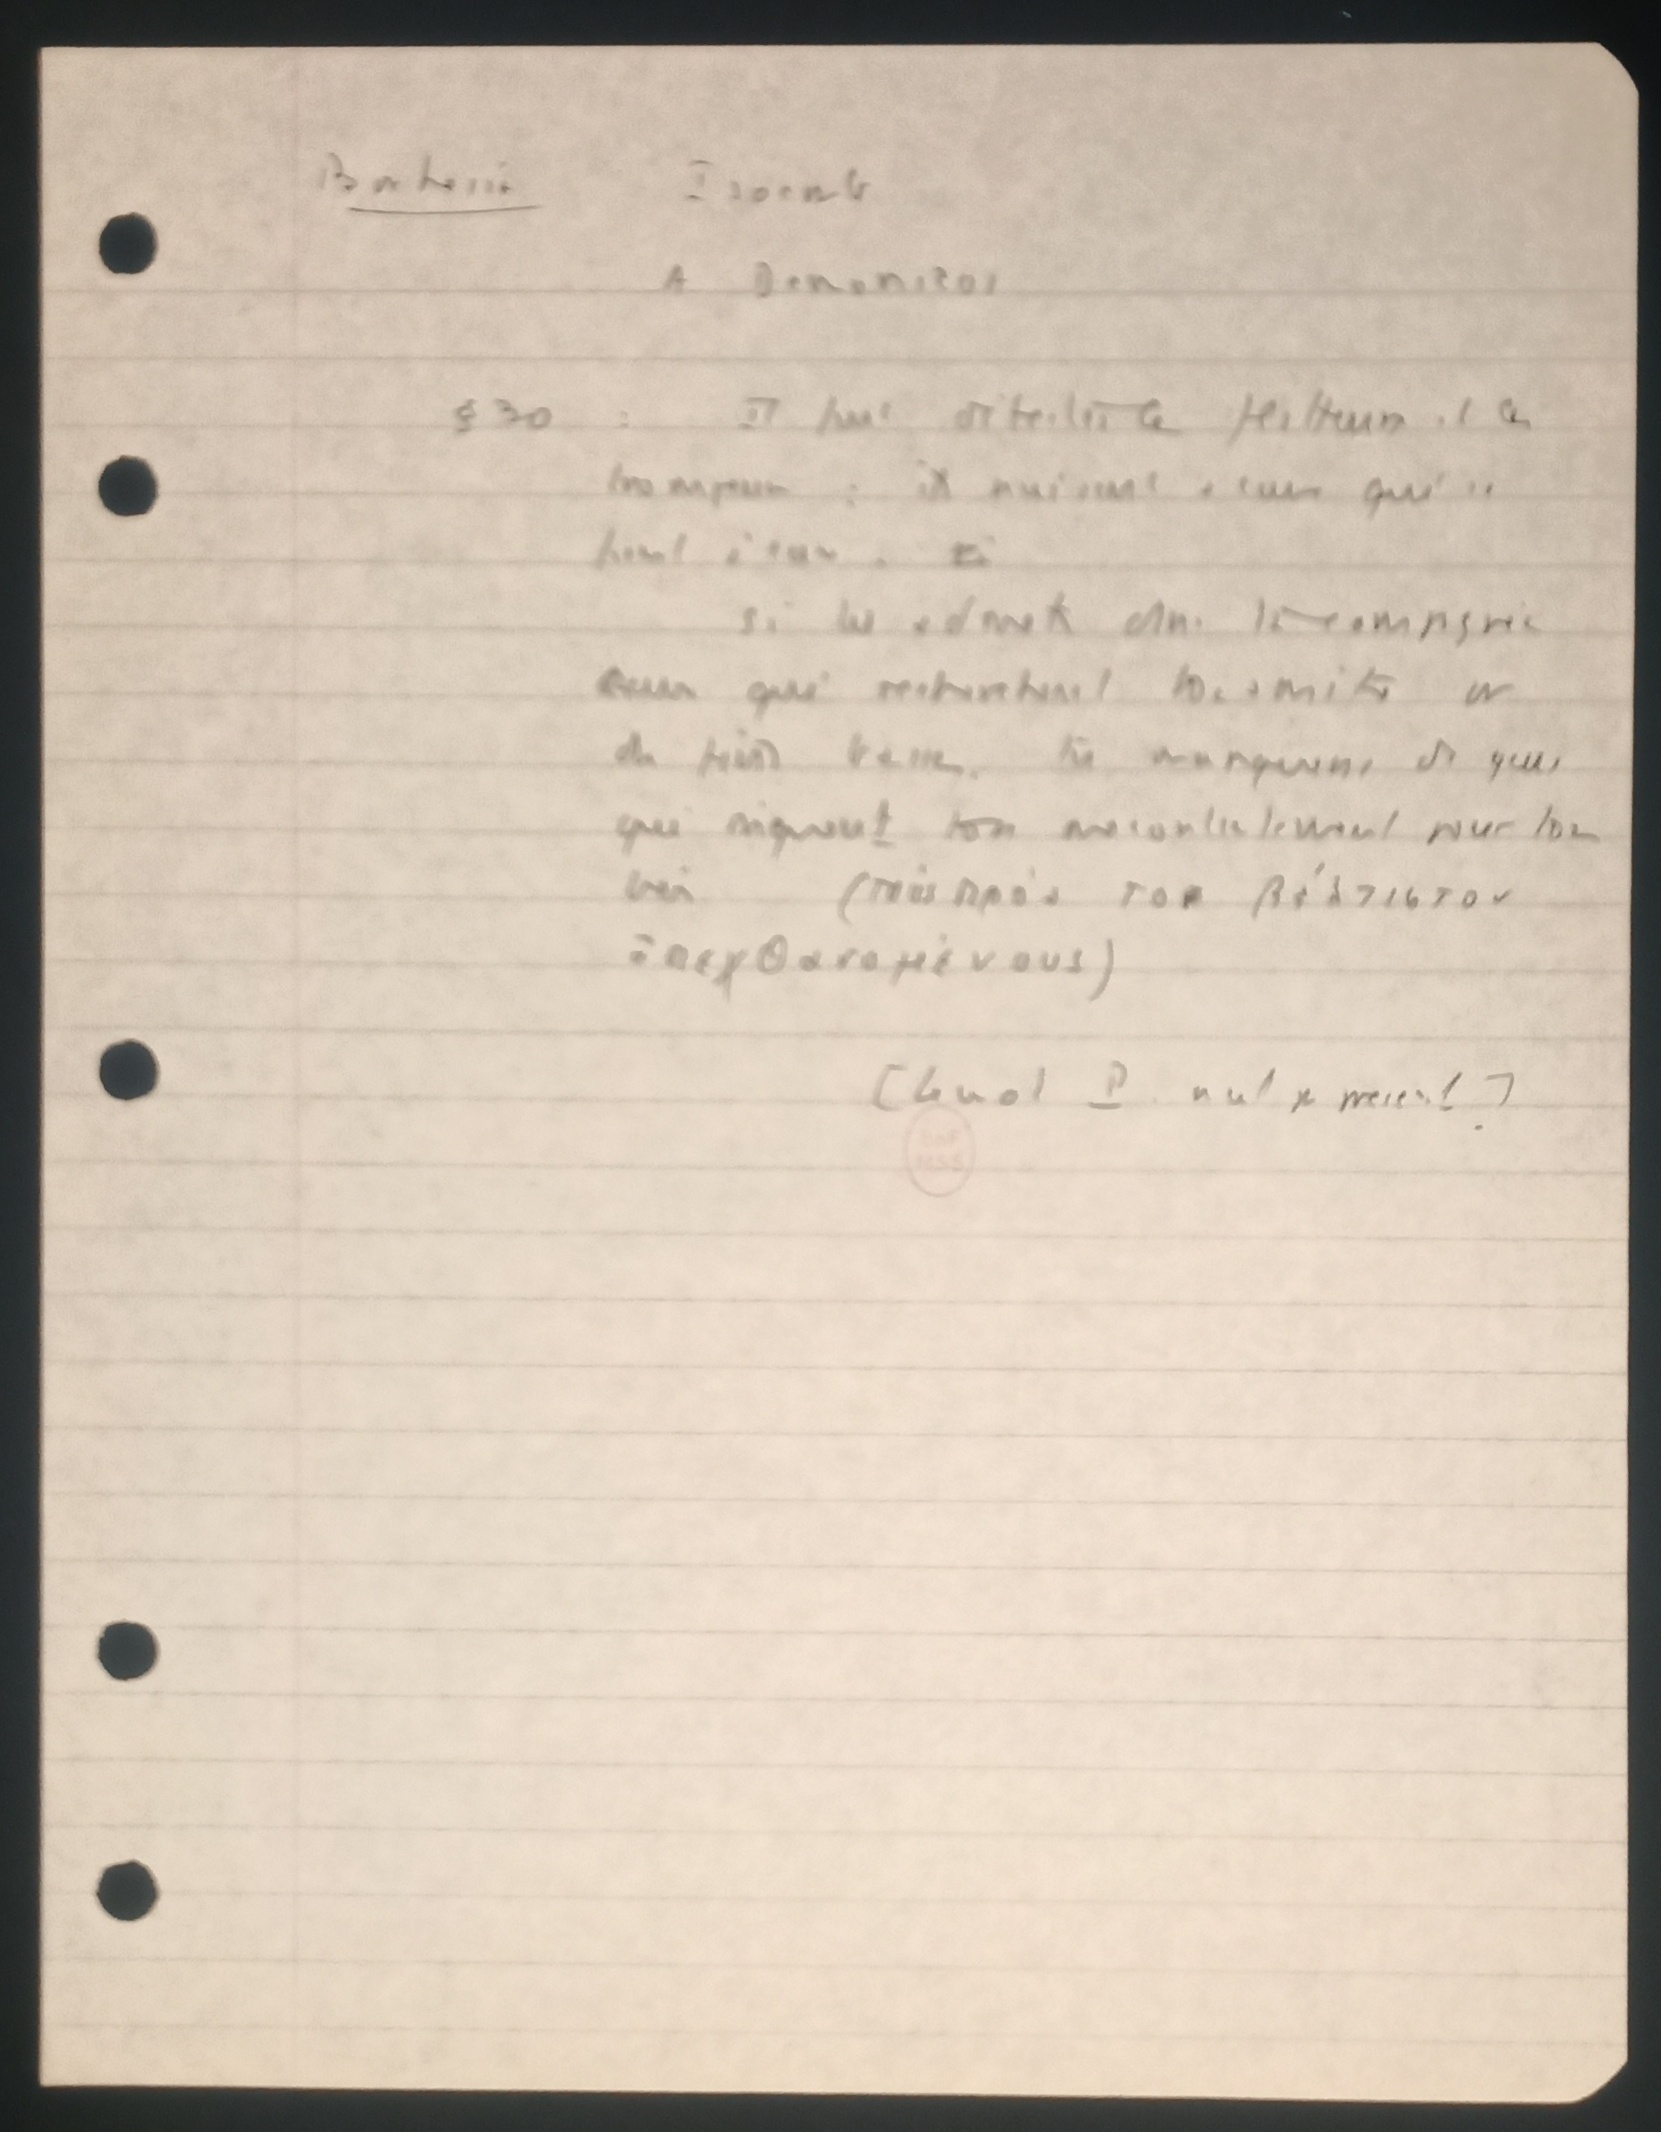 Parrhesia Isocrate
A Demonicos
§ 30 : Il faut détester les flatteurs et les
trompeurs : ils nuisent à ceux qui se
fient à eux. Si
Si tu admets dans ta compagnie
ceux qui recherchent ton amitié en
du tu manqueras de gens
qui risquent ton mécontentement pour ton
bien (τοὺς πρὸς τὸ βέλτιστον
ἀπεχθανομένους)
[Le mot P. n'est pas présent]
BnF
MSS